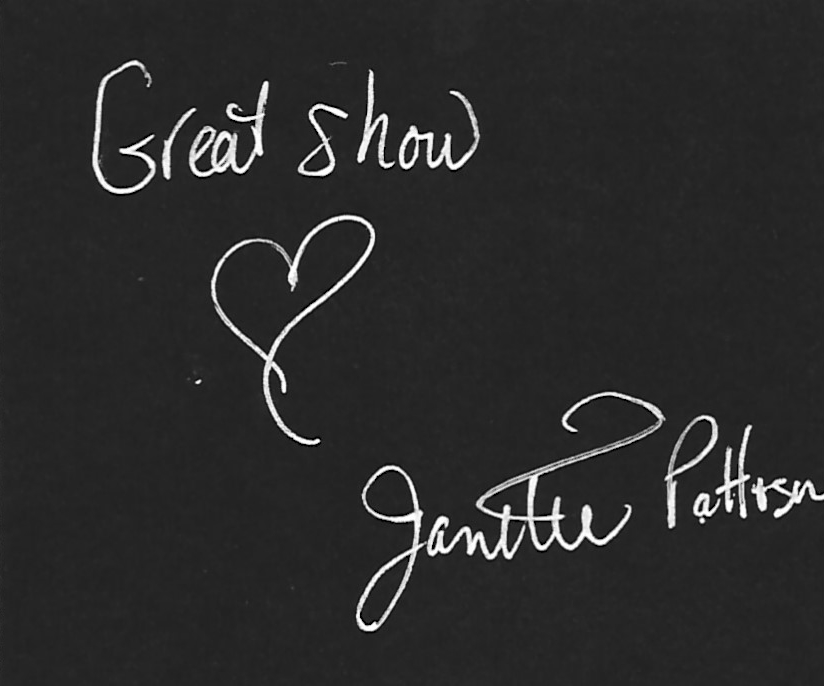 Great show
Janette Pattison